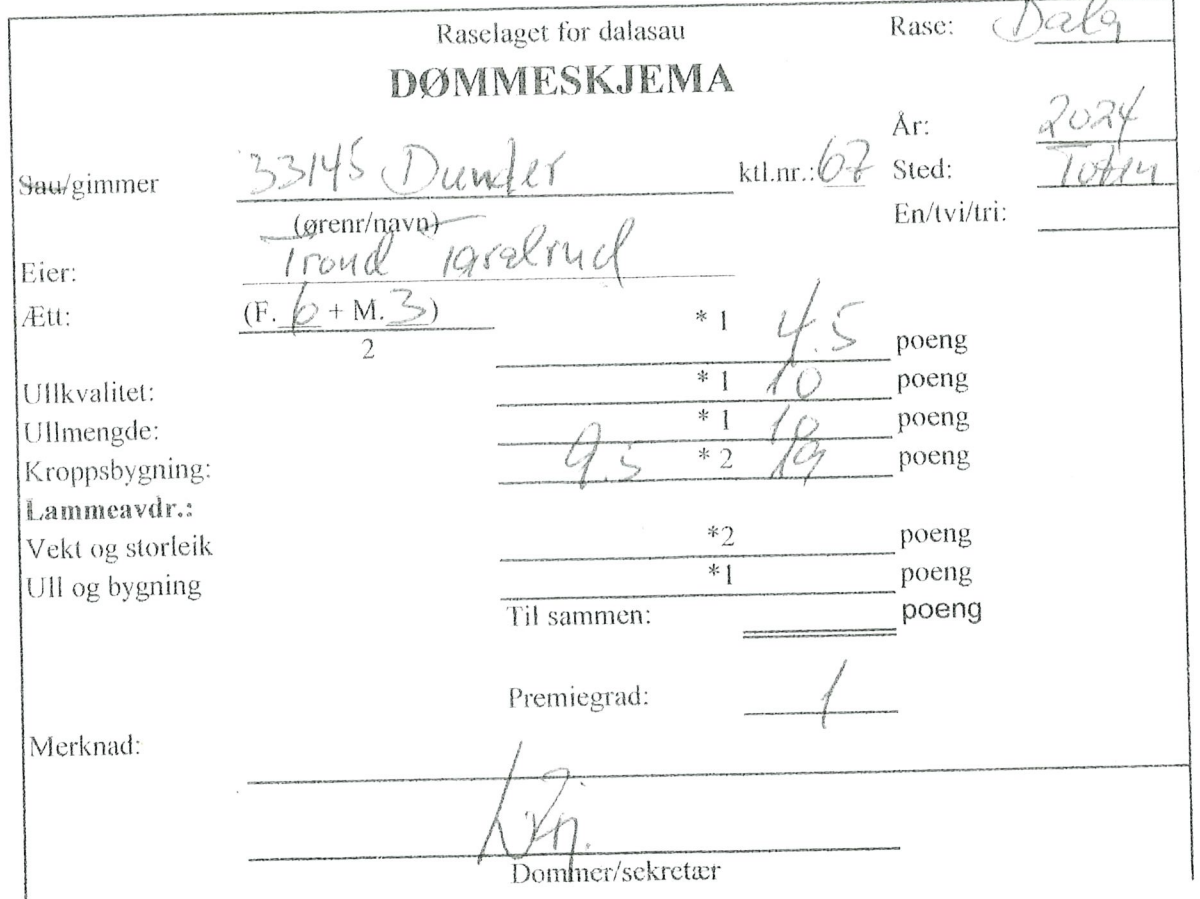 Raselaget for dalasau Rase: Dala
DØMMESKJEMA
År: 2024
Sau/gimmer 33145 Dunder ktl.nr.: 67 Sted:
(ørenr/navn) En/tvi/tri:
Eier: Trond
Ætt: (F. 6 + M. 3) * 1 4.5 poeng
2
Ullkvalitet: * 1 10 poeng
Ullmengde: * 1 10 poeng
Kroppsbygning: 9.5 * 2 19 poeng
Lammeavdr.:
Vekt og storleik *2 poeng
Ull og bygning *1 poeng
Til sammen: poeng
Premiegrad: 1
Merknad:
Dommer/sekretær